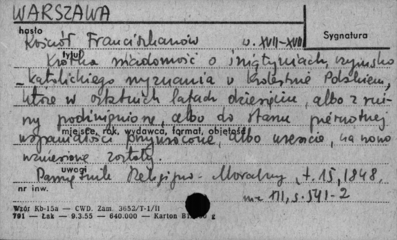 WARSZAWA
hasło
Kościół Franciszkanów w. XVII-XVIII
Sygnatura
tytuł
Krótka wiadomość o świątyniach, rzymsko
-katolickiego wyznania w Królestwie Polskiem,
które w ostatnich latach dziesięciu, albo z rui
ny podźwignione, albo do stanu pierwotnej
miejsce, rok, wydawca, format, objętość
wspaniałości przywrócone, albo wreszcie, na nowo
wzniesione zostały.
uwagi
Pamiętnik Religijno-Moralny, t. 15, 1848,
nr inw.
nr III, s. 541-2
Wzór Kb-15a — CWD. Zam. 3652/T-1/II
791 — Łak — 9.3.55 — 640.000 — Karton g